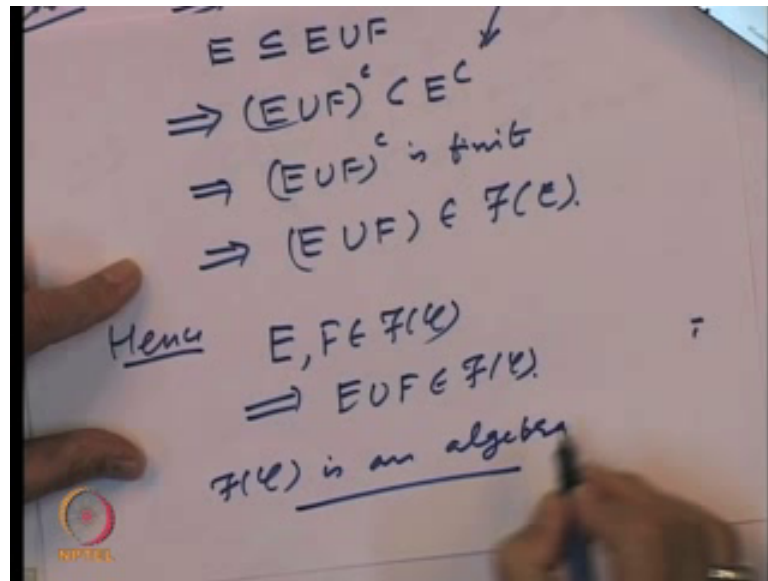 E ⊆ E ∪ F
⟹ (E ∪ F)ᶜ ⊂ Eᶜ
⟹ (E ∪ F)ᶜ is finit
⟹ (E ∪ F) ∈ 𝓕(𝓒).
Hence E, F ∈ 𝓕(𝓒)
⟹ E ∪ F ∈ 𝓕(𝓒).
𝓕(𝓒) is an algebra
NPTEL